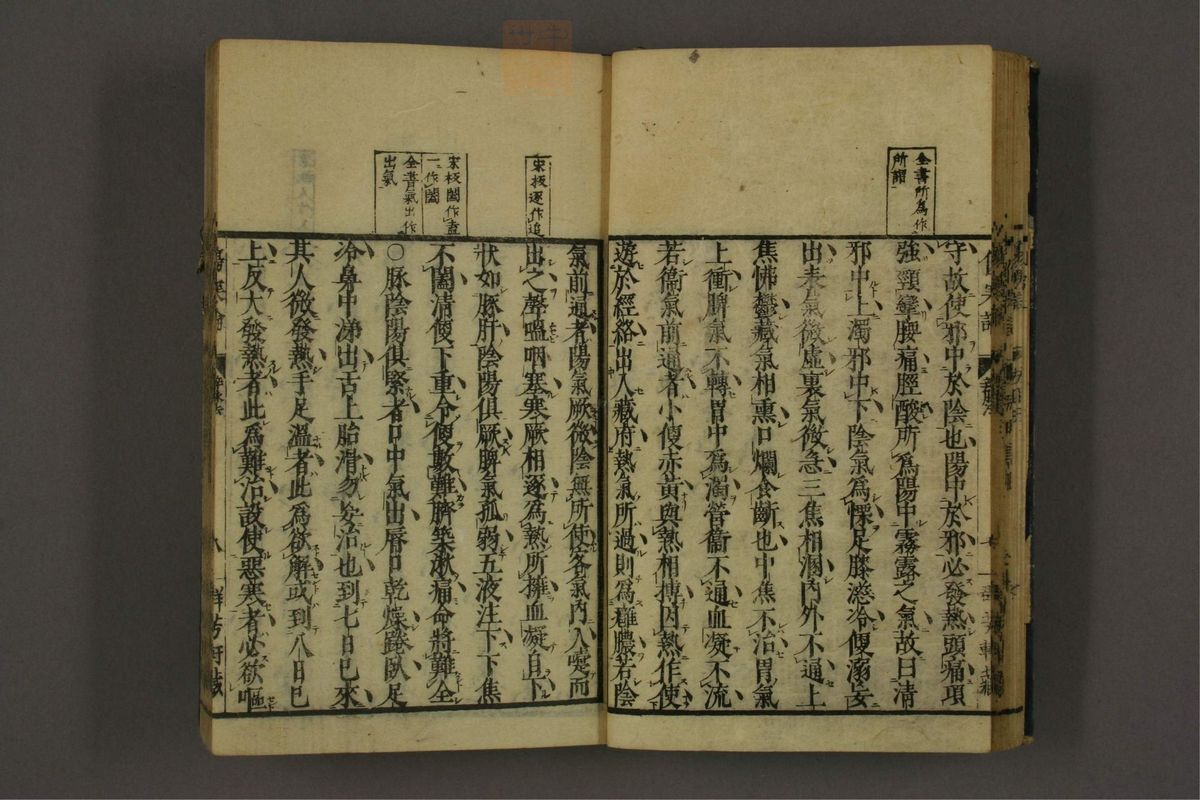 全書所為作
所謂
守故使邪中於陰也陽中於邪必發熱頭痛項
強頸攣腰痛脛酸所為陽中霧露之氣故曰清
邪中上濁邪中下陰氣為慄足膝逆冷便溺妄
出表氣微虛裏氣微急三焦相溷內外不通上
焦怫鬱藏氣相熏口爛食齗也中焦不治胃氣
上衝脾氣不轉胃中為濁營衞不通血凝不流
若衞氣前通者小便赤黃與熱相搏因熱作使
遊於經絡出入藏府熱氣所過則為癰膿若陰
宋板逐作追
宋板闔作盍
一作闔
全書氣出作
出氣
氣前通者陽氣厥微陰無所使客氣內入嚏而
出之聲嗢咽塞寒厥相逐為熱所擁血凝自下
狀如豚肝陰陽俱厥脾氣孤弱五液注下下焦
不闔清便下重令便數難臍築湫痛命將難全
○脉陰陽俱緊者口中氣出唇口乾燥踡臥足
冷鼻中涕出舌上胎滑勿妄治也到七日已來
其人微發熱手足溫者此為欲解或到八日已
上反大發熱者此為難治設使惡寒者必欲嘔